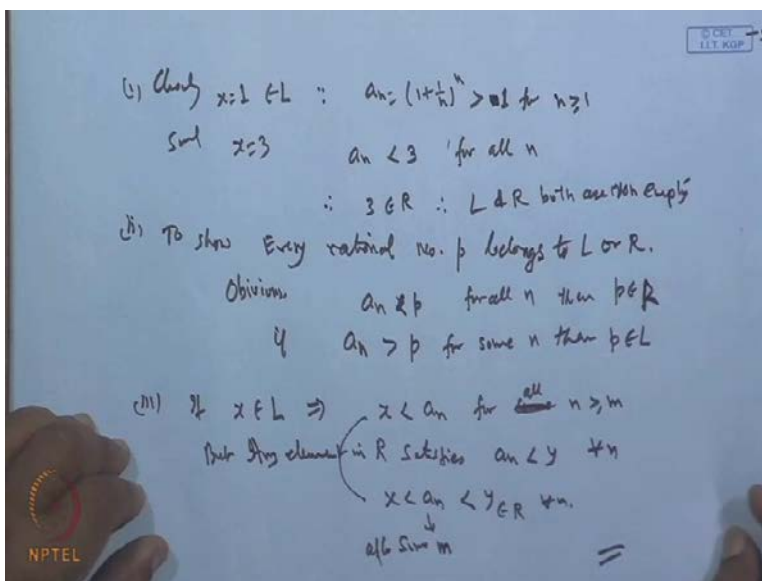 © CET
I.I.T. KGP
(i) Clearly x=1 ∈ L ∵ an = (1+1/n)^n > 1 for n≥1
x=3 an < 3 for all n
∴ 3 ∈ R ∴ L & R both are non empty
(ii) To show Every rational no. p belongs to L or R.
Obivious an < p for all n then p ∈ R
if an > p for some n then p ∈ L
(iii) If x ∈ L ⇒ x < an for all n ≥ m
But Any element in R satisfies an < y ∀n
x < an < y ∈ R ∀n.
↓
after some m
NPTEL